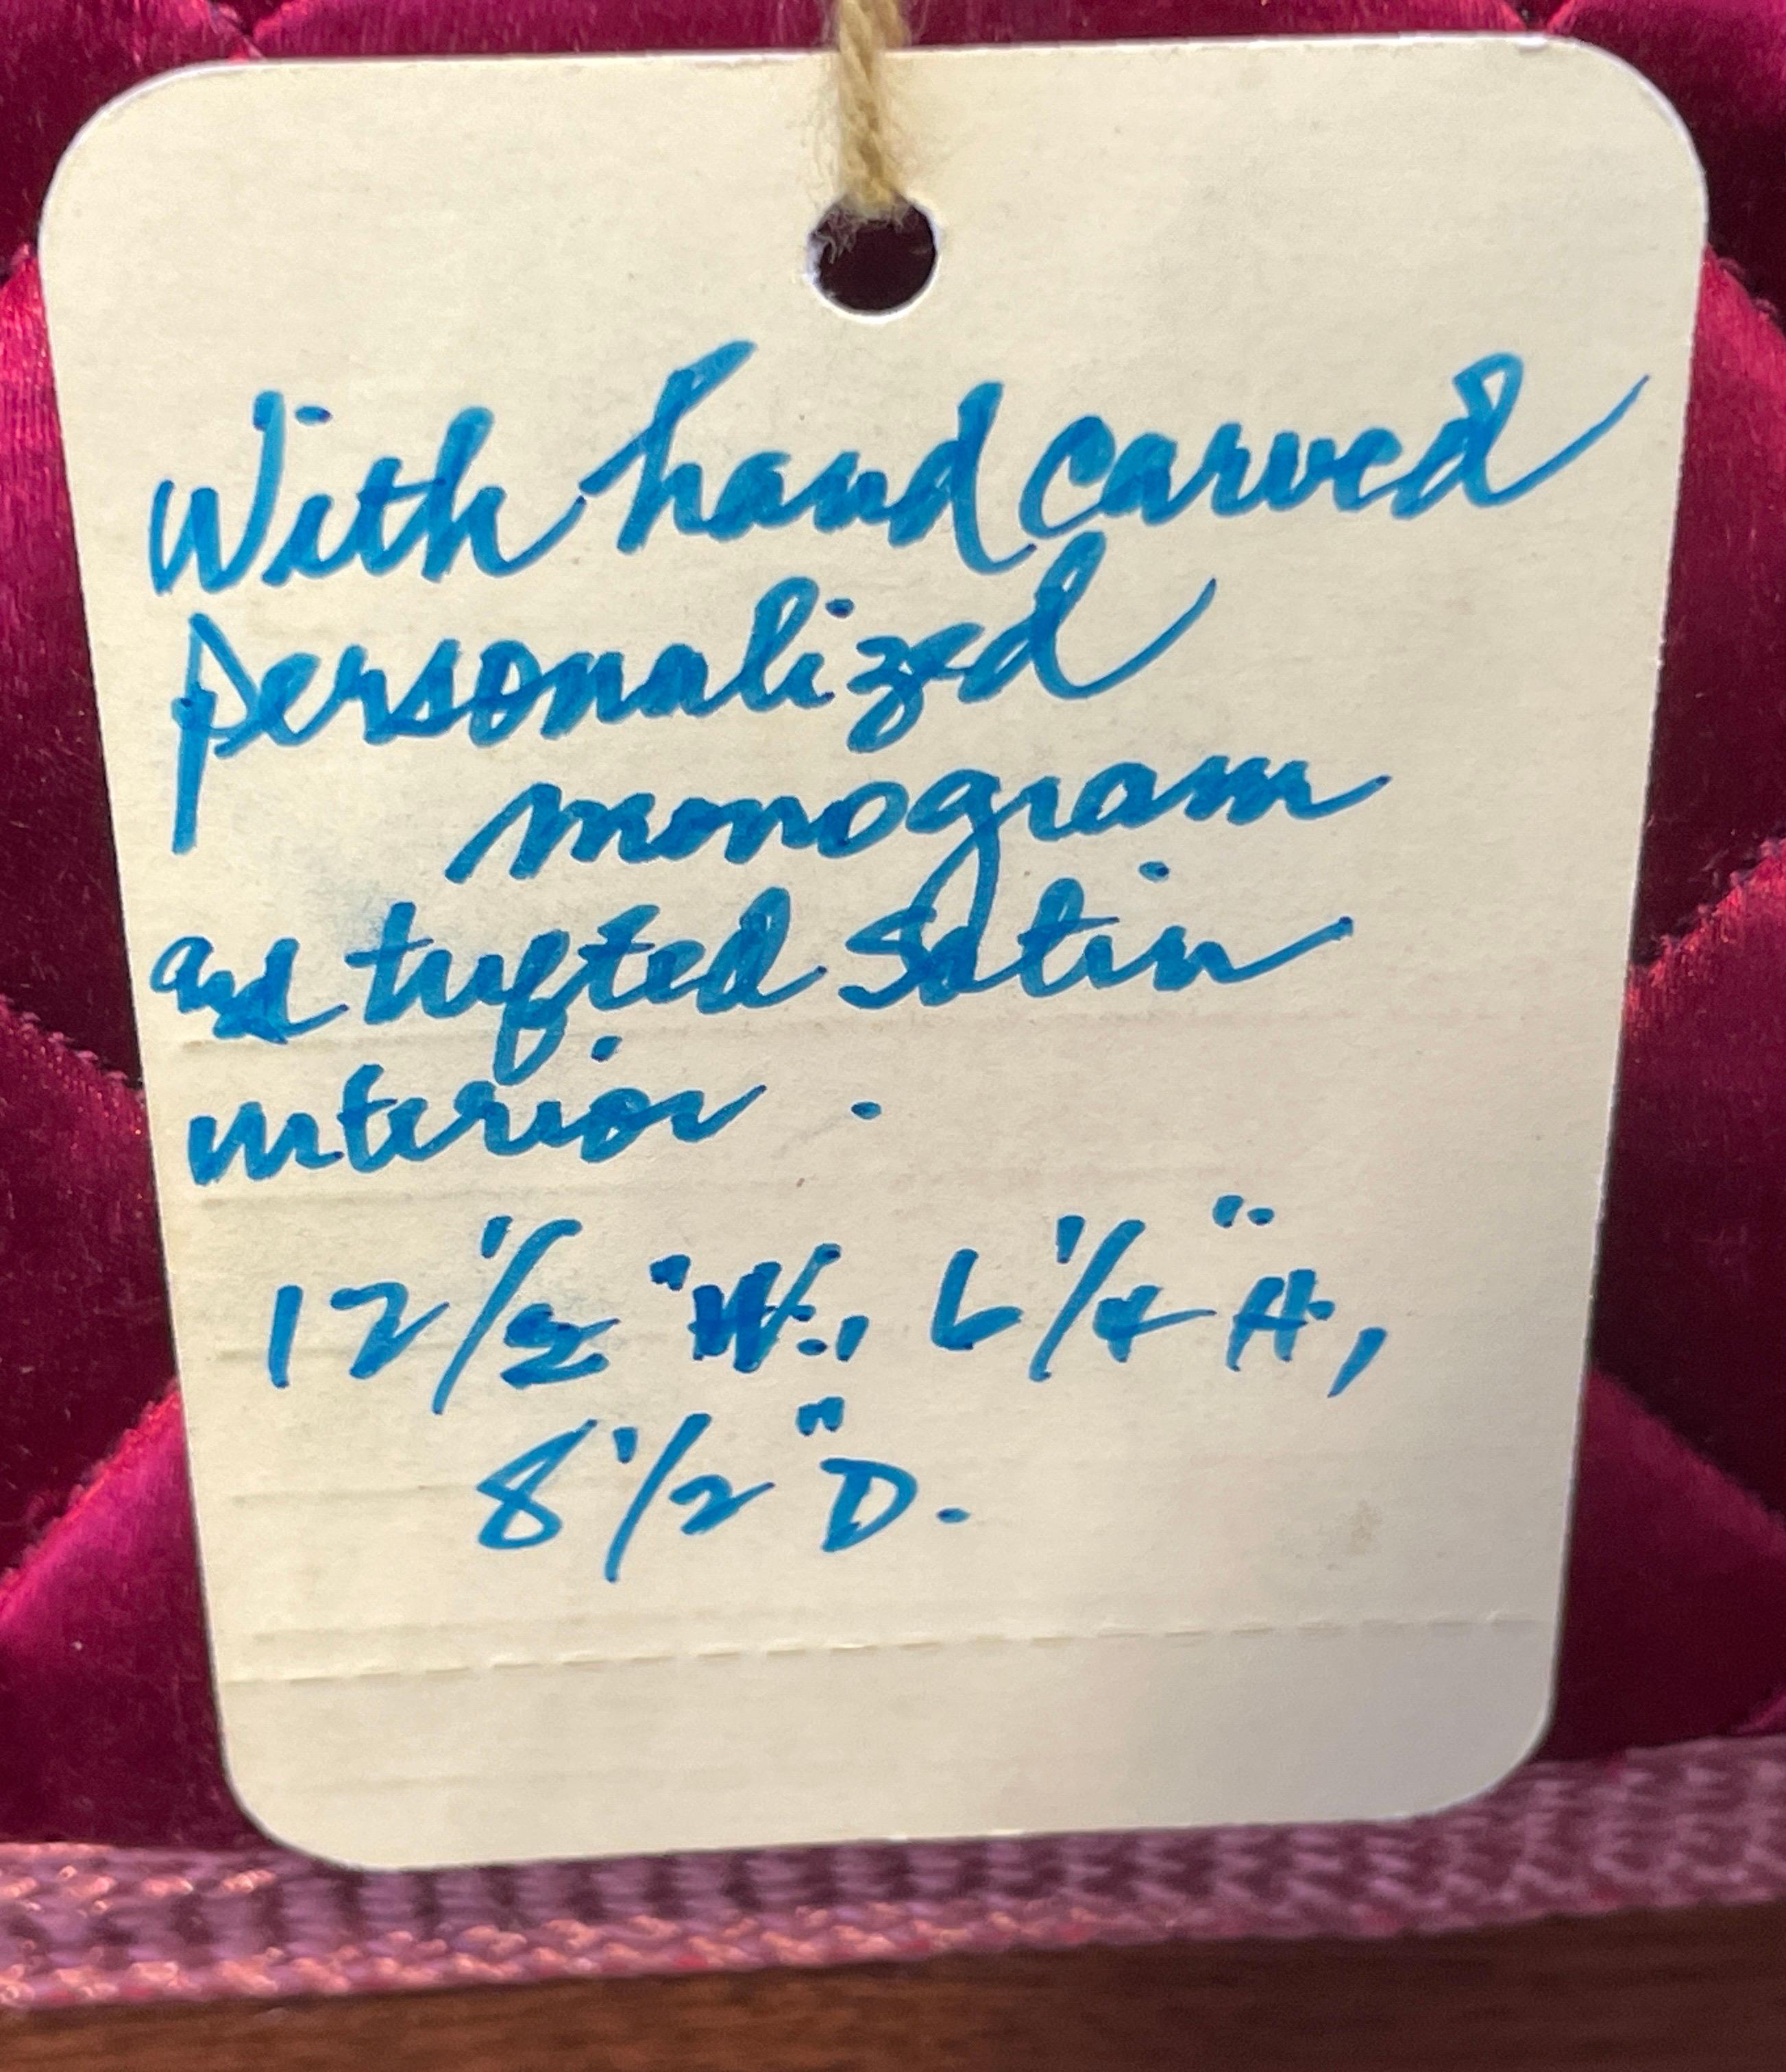 With hand carved
personalized
monogram
and tufted satin
interior.
12 1/2 "W., 6 1/4 "H,
8 1/2 "D.